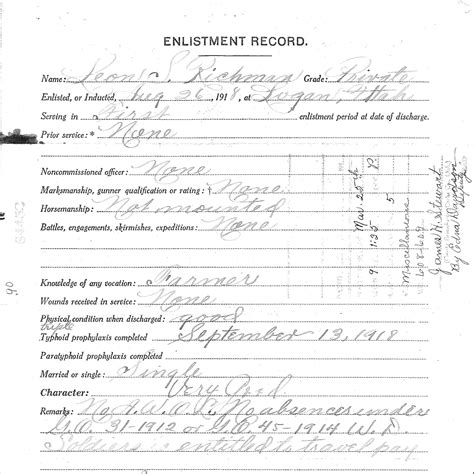 ENLISTMENT RECORD.
Name: Leon S. Richman Grade: Private
Enlisted, or Inducted, Aug 26, 1918, at Logan, Utah
Serving in First enlistment period at date of discharge.
Prior service: * None
Noncommissioned officer: None
Marksmanship, gunner qualification or rating: None
Horsemanship: Not mounted
Battles, engagements, skirmishes, expeditions: None
Knowledge of any vocation: Farmer
Wounds received in service: None
Physical condition when discharged: good
triple
Typhoid prophylaxis completed September 13, 1918
Paratyphoid prophylaxis completed
Married or single: Single
Character: Very Good
Remarks: No A.W.O.L. No absences under
G.O. 31-1912 or G.O. 45-1914 W.D.
Soldier entitled to travel pay
Mar. 25th
9 1:35 P
5
Miscellaneous
608-609
James H. Stewart
By Edna
Deputy